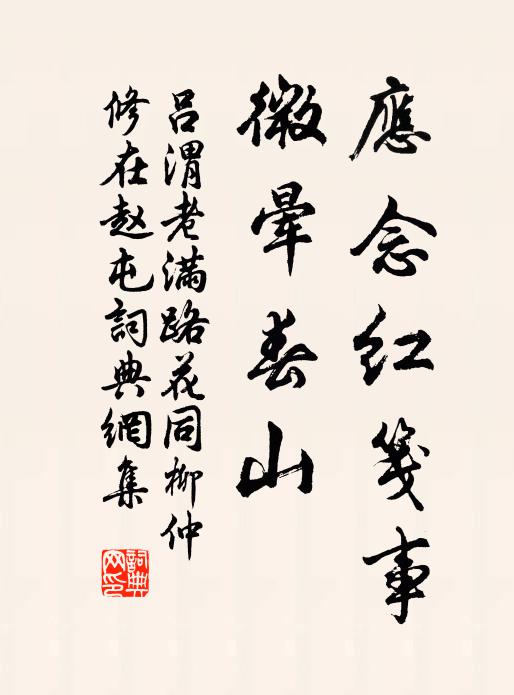 應念红箋事
微暈春山
吕渭老滿路花同柳仲
修在赵屯詞典網集
詞典网印